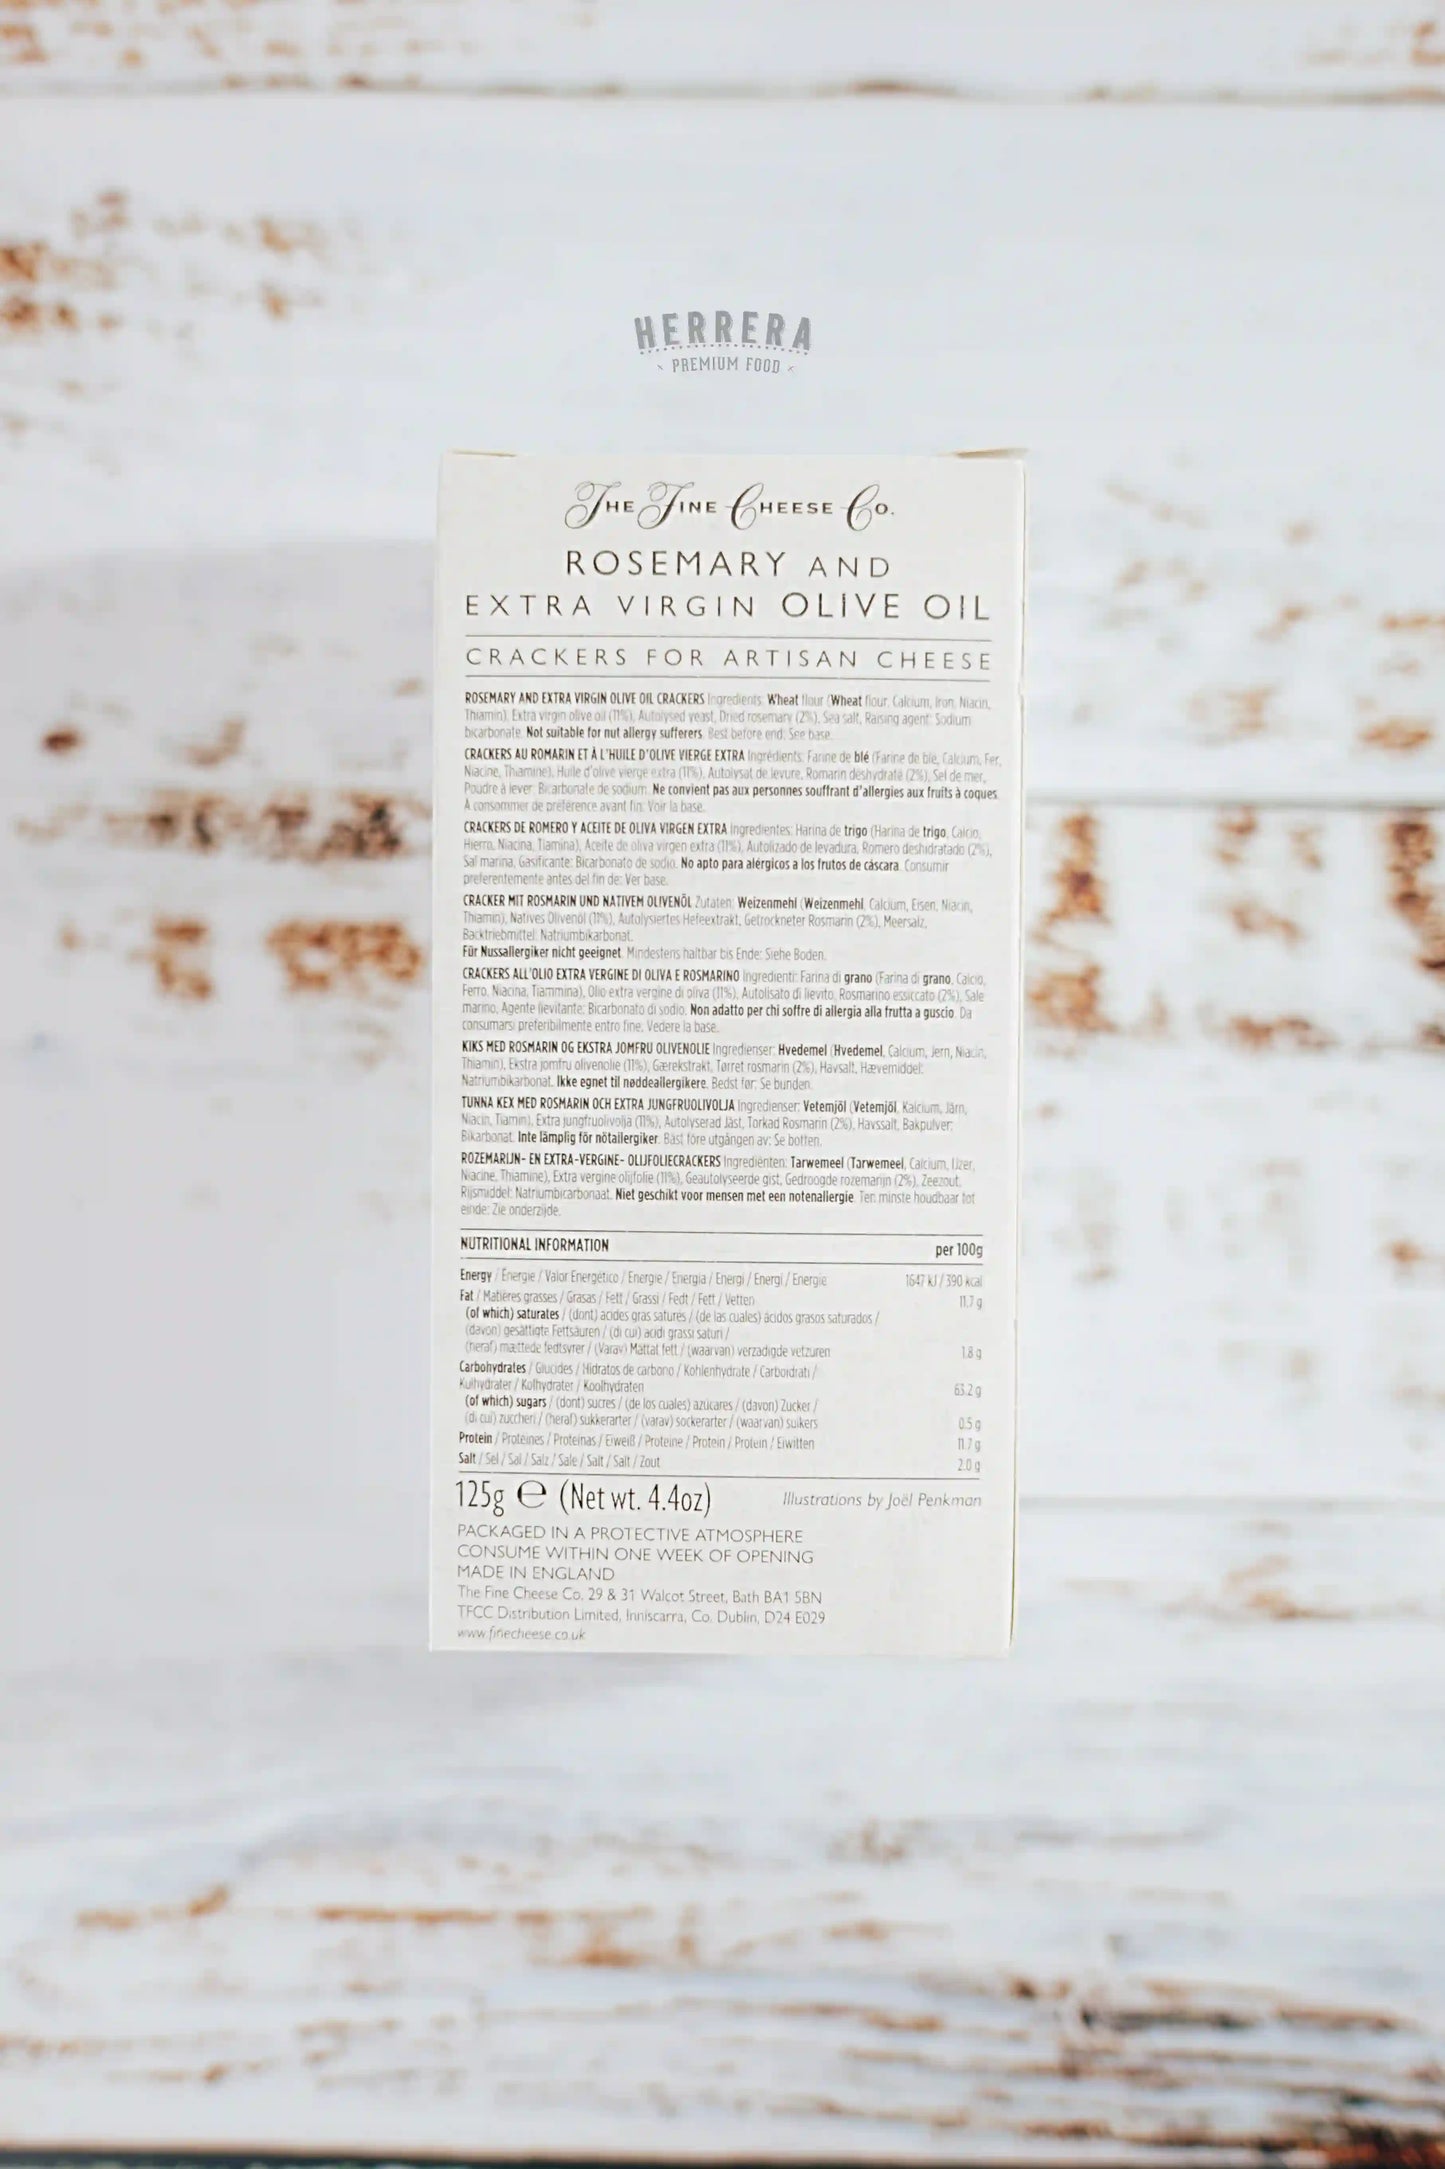 HERRERA
PREMIUM FOOD
THE FINE CHEESE CO.
ROSEMARY AND
EXTRA VIRGIN OLIVE OIL
CRACKERS FOR ARTISAN CHEESE
ROSEMARY AND EXTRA VIRGIN OLIVE OIL CRACKERS Ingredients: Wheat flour (Wheat flour, Calcium, Iron, Niacin,
Thiamin), Extra virgin olive oil (11%), Autolysed yeast, Dried rosemary (2%), Sea salt, Raising agent: Sodium
bicarbonate. Not suitable for nut allergy sufferers. Best before end: See base.
CRACKERS AU ROMARIN ET À L'HUILE D'OLIVE VIERGE EXTRA Ingrédients: Farine de blé (Farine de blé, Calcium, Fer,
Niacine, Thiamine), Huile d'olive vierge extra (11%), Autolysat de levure, Romarin déshydraté (2%), Sel de mer,
Poudre à lever: Bicarbonate de sodium. Ne convient pas aux personnes souffrant d'allergies aux fruits à coques.
A consommer de préférence avant fin: Voir la base.
CRACKERS DE ROMERO Y ACEITE DE OLIVA VIRGEN EXTRA Ingredientes: Harina de trigo (Harina de trigo, Calcio,
Hierro, Niacina, Tiamina), Aceite de oliva virgen extra (11%), Autolizado de levadura, Romero deshidratado (2%),
Sal marina, Gasificante: Bicarbonato de sodio. No apto para alérgicos a los frutos de cáscara. Consumir
preferentemente antes del fin de: Ver base.
CRACKER MIT ROSMARIN UND NATIVEM OLIVENÖL Zutaten: Weizenmehl (Weizenmehl, Calcium, Eisen, Niacin,
Thiamin), Natives Olivenöl (11%), Autolysiertes Hefeextrakt, Getrockneter Rosmarin (2%), Meersalz,
Backtriebmittel: Natriumbikarbonat.
Für Nussallergiker nicht geeignet. Mindestens haltbar bis Ende: Siehe Boden.
CRACKERS ALL'OLIO EXTRA VERGINE DI OLIVA E ROSMARINO Ingredienti: Farina di grano (Farina di grano, Calcio,
Ferro, Niacina, Tiammina), Olio extra vergine di oliva (11%), Autolisato di lievito, Rosmarino essiccato (2%), Sale
marino, Agente lievitante: Bicarbonato di sodio. Non adatto per chi soffre di allergia alla frutta a guscio. Da
consumarsi preferibilmente entro fine: Vedere la base.
KIKS MED ROSMARIN OG EKSTRA JOMFRU OLIVENOLIE Ingredienser: Hvedemel (Hvedemel, Calcium, Jern, Niacin,
Thiamin), Ekstra jomfru olivenolie (11%), Gærekstrakt, Tørret rosmarin (2%), Havsalt, Hævemiddel:
Natriumbikarbonat. Ikke egnet til nøddeallergikere. Bedst før: Se bunden.
TUNNA KEX MED ROSMARIN OCH EXTRA JUNGFRUOLIVOLJA Ingredienser: Vetemjöl (Vetemjöl, Kalcium, Järn,
Niacin, Tiamin), Extra jungfruolivolja (11%), Autolyserad Jäst, Torkad Rosmarin (2%), Havssalt, Bakpulver:
Bikarbonat. Inte lämplig för nötallergiker. Bäst före utgången av: Se botten.
ROZEMARIJN- EN EXTRA-VERGINE- OLIJFOLIECRACKERS Ingrediënten: Tarwemeel (Tarwemeel, Calcium, IJzer,
Niacine, Thiamine), Extra vergine olijfolie (11%), Geautolyseerde gist, Gedroogde rozemarijn (2%), Zeezout,
Rijsmiddel: Natriumbicarbonaat. Niet geschikt voor mensen met een notenallergie. Ten minste houdbaar tot
einde: Zie onderzijde.
NUTRITIONAL INFORMATION per 100g
Energy / Énergie / Valor Energético / Energie / Energia / Energi / Energi / Energie 1647 kJ / 390 kcal
Fat / Matières grasses / Grasas / Fett / Grassi / Fedt / Fett / Vetten 11.7 g
(of which) saturates / (dont) acides gras saturés / (de las cuales) ácidos grasos saturados /
(davon) gesättigte Fettsäuren / (di cui) acidi grassi saturi /
(heraf) mættede fedtsyrer / (Varav) Mättat fett / (waarvan) verzadigde vetzuren 1.8 g
Carbohydrates / Glucides / Hidratos de carbono / Kohlenhydrate / Carboidrati /
Kulhydrater / Kolhydrater / Koolhydraten 63.2 g
(of which) sugars / (dont) sucres / (de los cuales) azúcares / (davon) Zucker /
(di cui) zuccheri / (heraf) sukkerarter / (varav) sockerarter / (waarvan) suikers 0.5 g
Protein / Protéines / Proteínas / Eiweiß / Proteine / Protein / Protein / Eiwitten 11.7 g
Salt / Sel / Sal / Salz / Sale / Salt / Salt / Zout 2.0 g
125g ℮ (Net wt. 4.4oz) Illustrations by Joël Penkman
PACKAGED IN A PROTECTIVE ATMOSPHERE
CONSUME WITHIN ONE WEEK OF OPENING
MADE IN ENGLAND
The Fine Cheese Co. 29 & 31 Walcot Street, Bath BA1 5BN
TFCC Distribution Limited, Inniscarra, Co. Dublin, D24 E029
www.finecheese.co.uk